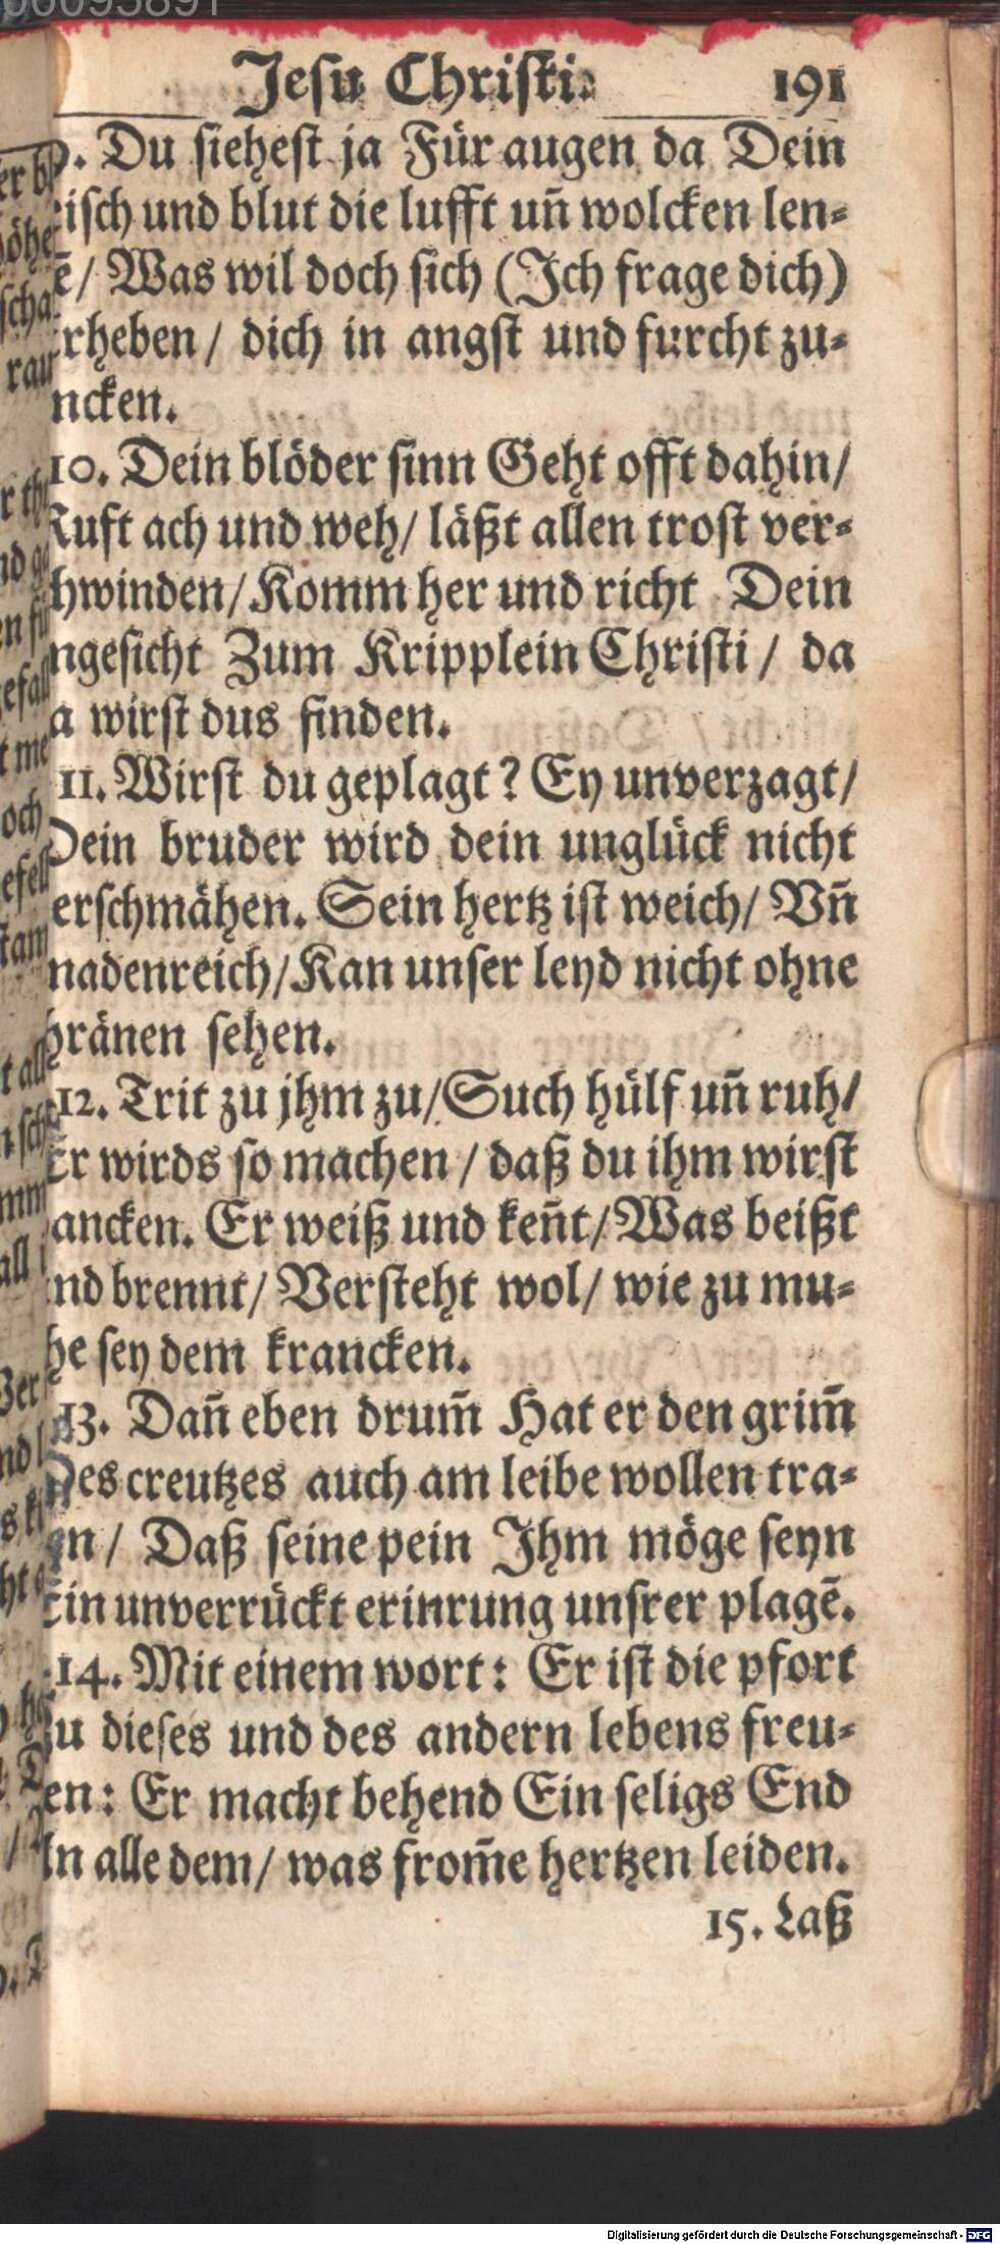 Jesu Christi. 191
9. Du siehest ja Für augen da Dein
isch und blut die lufft uñ wolcken len⸗
ẽ/ Was wil doch sich (Ich frage dich)
rheben/ dich in angst und furcht zu⸗
ncken.
10. Dein blöder sinn Geht offt dahin/
Ruft ach und weh/ läßt allen trost ver⸗
hwinden/ Komm her und richt Dein
ngesicht Zum Kripplein Christi/ da
a wirst dus finden.
11. Wirst du geplagt? Ey unverzagt/
Dein bruder wird dein unglück nicht
erschmähen. Sein hertz ist weich/ Vñ
nadenreich/ Kan unser leyd nicht ohne
hränen sehen.
12. Trit zu jhm zu/ Such hülf uñ ruh/
Er wirds so machen/ daß du ihm wirst
ancken. Er weiß und keñt/ Was beißt
nd brennt/ Versteht wol/ wie zu mu⸗
he sey dem krancken.
13. Dañ eben drum̃ Hat er den grim̃
Des creutzes auch am leibe wollen tra⸗
en/ Daß seine pein Ihm möge seyn
Ein unverrückt erinrung unsrer plagẽ.
14. Mit einem wort: Er ist die pfort
Zu dieses und des andern lebens freu⸗
en: Er macht behend Ein seligs End
An alle dem/ was from̃e hertzen leiden.
15. Laß
Digitalisierung gefördert durch die Deutsche Forschungsgemeinschaft - DFG